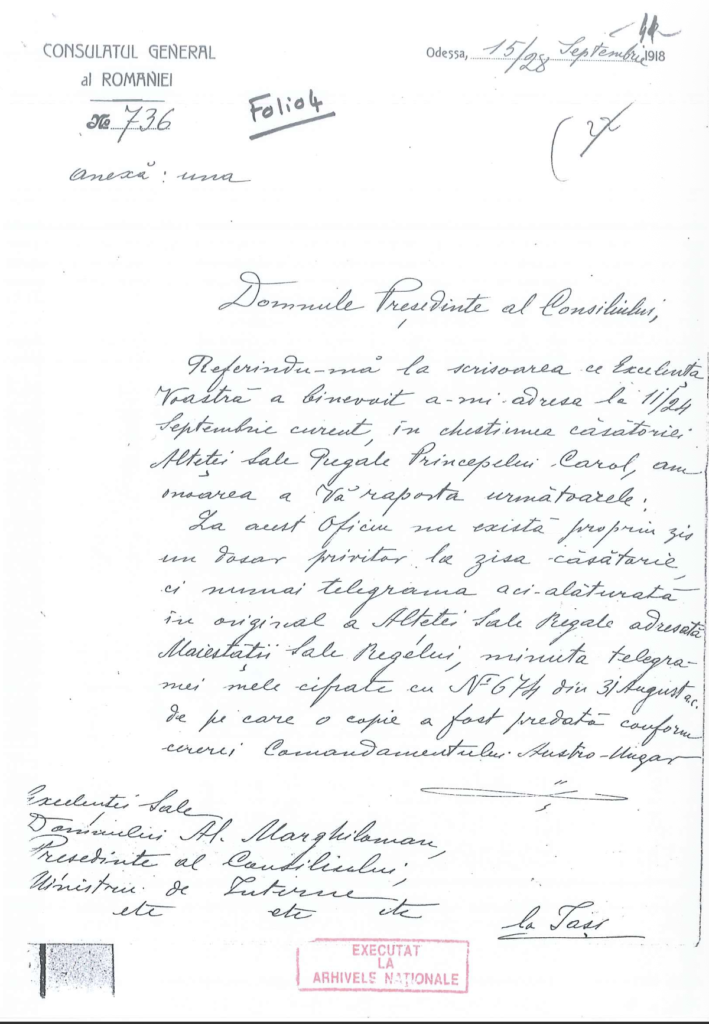 CONSULATUL GENERAL
al ROMÂNIEI
No 736
Folio 4
Odessa, 15/28 Septembrie 1918
anexă : una
Domnule Președinte al Consiliului,
Referindu-mă la scrisoarea ce Excelența
Voastră a binevoit a-mi adresa la 11/24
Septembrie curent, în chestiunea căsătoriei
Altetei Sale Regale Principelui Carol, am
onoarea a Vă raporta următoarele:
La acest Oficiu nu există propriu zis
un dosar privitor la zisa căsătorie,
ci numai telegrama aci-alăturată
în original a Altetei Sale Regale adresată
Maiestății Sale Regelui, minuta telegra-
mei mele cifrate cu No 674 din 31 August a.c.
de pe care o copie a fost predată conform
cererei Comandamentului Austro-Ungar
Excelenței Sale
Domnului Al. Marghiloman,
Președinte al Consiliului,
Ministru de Interne
etc etc etc
la Iași
EXECUTAT
LA
ARHIVELE NAȚIONALE